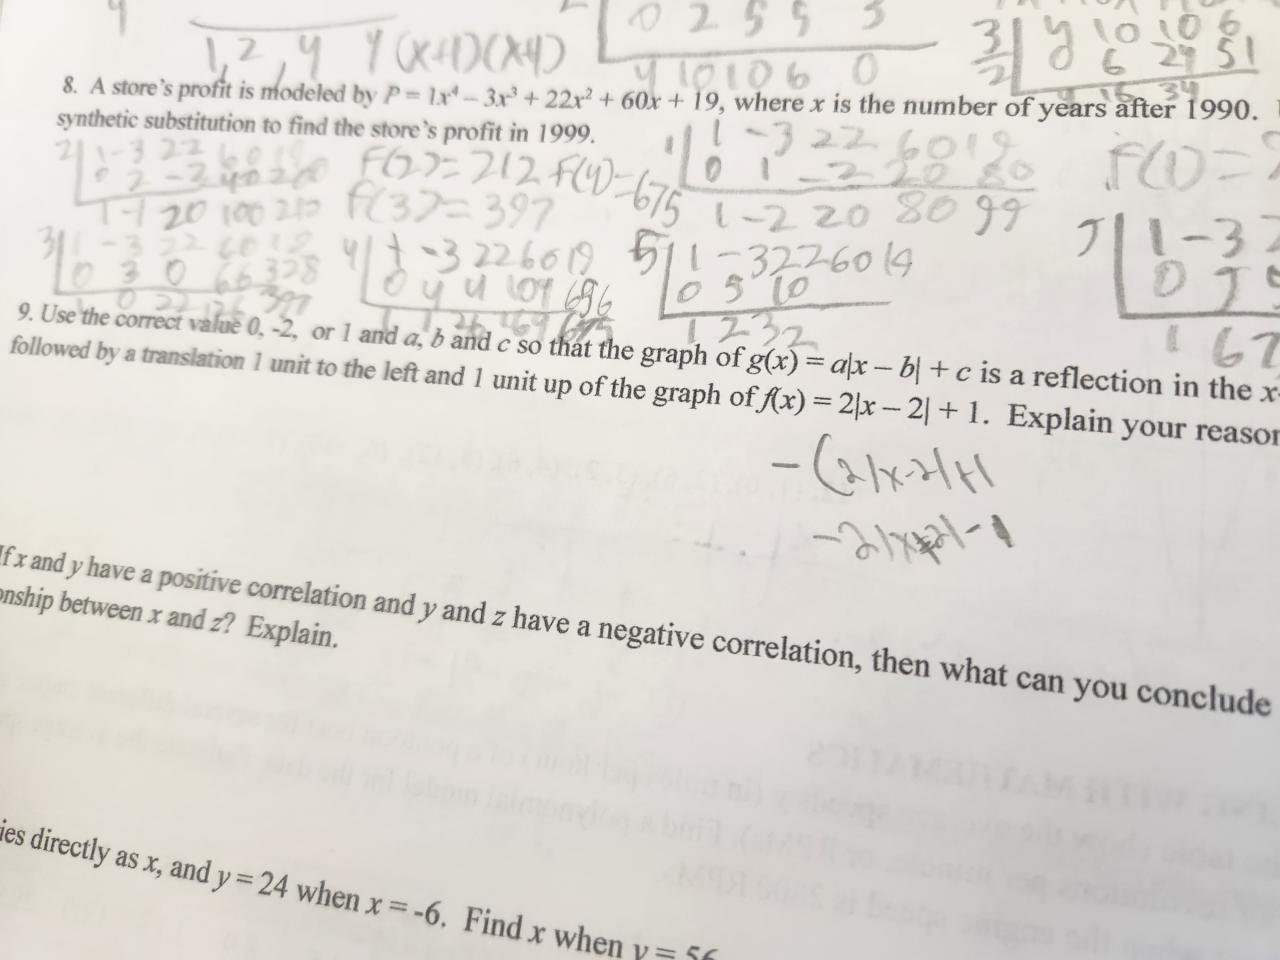 1, 2, 4 4(x+1)(x+4)
0 2 5 5 3
4 10 10 6 0
3/2 4 10 10 6
0 6 24 51
8. A store's profit is modeled by P = 1x⁴ – 3x³ + 22x² + 60x + 19, where x is the number of years after 1990.
synthetic substitution to find the store's profit in 1999.
2 1 -3 22 60 19 f(2)=212 f(4)=675 1 1 -3 22 60 19 f(1)=
0 2 -2 40 200 0 1 -2 20 80
1 -1 20 100 219 f(3)=397 1 -2 20 80 99
3 1 -3 22 60 19 4 1 -3 22 60 19 5 1 -3 22 60 19 7 1 -3
0 3 0 66 378 0 4 4 104 656 0 5 10 0 7
1 0 22 126 397 1 1 26 164 675 1 2 32 1
9. Use the correct value 0, -2, or 1 and a, b and c so that the graph of g(x) = a|x – b| + c is a reflection in the x-
followed by a translation 1 unit to the left and 1 unit up of the graph of f(x) = 2|x – 2| + 1. Explain your reason
-(2|x-2|+1
-2|x+2|-1
If x and y have a positive correlation and y and z have a negative correlation, then what can you conclude
onship between x and z? Explain.
ies directly as x, and y = 24 when x = -6. Find x when y = 56